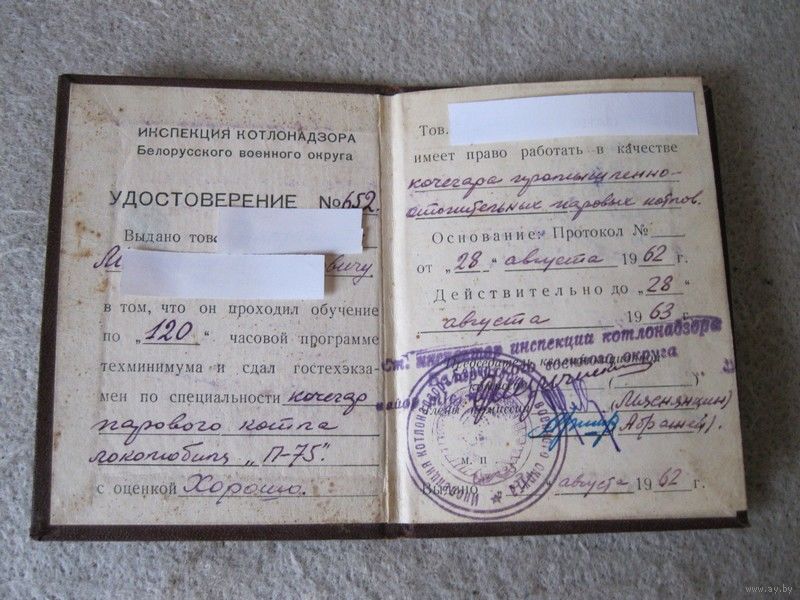 ИНСПЕКЦИЯ КОТЛОНАДЗОРА
Белорусского военного округа
УДОСТОВЕРЕНИЕ № 652.
Выдано това
М вичу
в том, что он проходил обучение
по „120“ часовой программе
техминимума и сдал гостехэкза-
мен по специальности кочегар
парового котла
локомобиля „П-75“.
с оценкой Хорошо.
Тов.
имеет право работать в качестве
кочегара промышленно-
отопительных паровых котлов.
Основание: Протокол №
от „28“ августа 1962 г.
Действительно до „28“
августа 1963 г.
Ст. инспектор инспекции котлонадзора
Белорусского военного округа
Председатель
комиссии ( )
Члены комиссии (Мяснянкин)
(Абрашев).
М. П.
Выдано августа 1962 г.
ИНСПЕКЦИЯ КОТЛОНАДЗОРА
www.ay.by